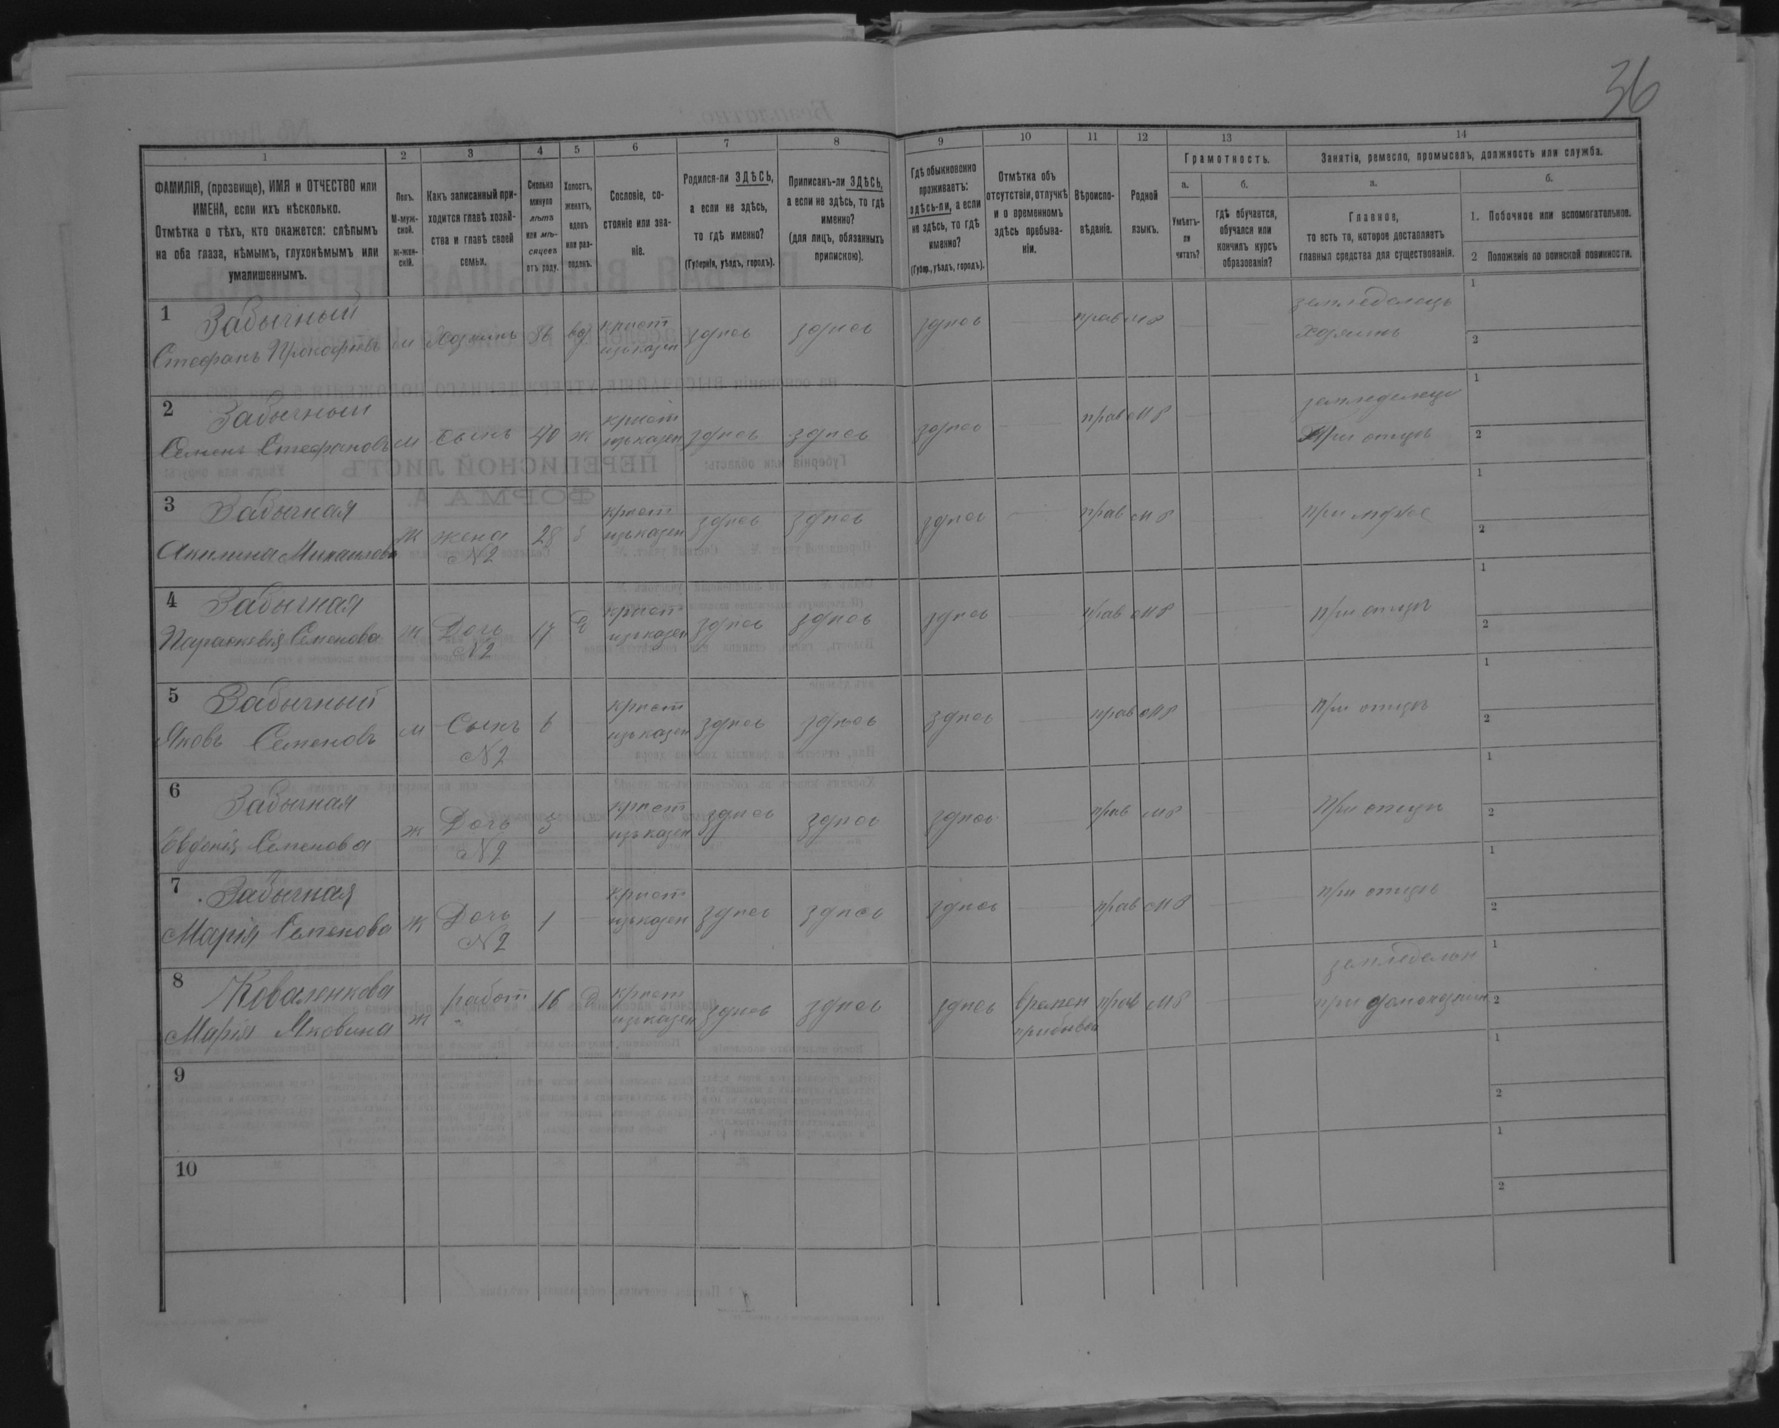 36
1
2
3
4
5
6
7
8
9
10
11
12
13
14
ФАМИЛІЯ, (прозвище), ИМЯ и ОТЧЕСТВО или
ИМЕНА, если ихъ нѣсколько.
Отмѣтка о тѣхъ, кто окажется: слѣпымъ
на оба глаза, нѣмымъ, глухонѣмымъ или
умалишеннымъ.
Полъ.
М-муж-
ской.
Ж-жен-
скій.
Какъ записанный при-
ходится главѣ хозяй-
ства и главѣ своей
семьи.
Сколько
минуло
лѣтъ
или мѣ-
сяцевъ
отъ роду.
Холостъ,
женатъ,
вдовъ
или раз-
веденъ.
Сословіе, со-
стояніе или зва-
ніе.
Родился-ли ЗДѢСЬ,
а если не здѣсь,
то гдѣ именно?
(Губернія, уѣздъ, городъ).
Приписанъ-ли ЗДѢСЬ,
а если не здѣсь, то гдѣ
именно?
(для лицъ, обязанныхъ
припискою).
Гдѣ обыкновенно
проживаетъ:
здѣсь-ли, а если
не здѣсь, то гдѣ
именно?
(Губер., уѣздъ, городъ).
Отмѣтка объ
отсутствіи, отлучкѣ
и о временномъ
здѣсь пребыва-
ніи.
Вѣроиспо-
вѣданіе.
Родной
языкъ.
Грамотность.
а.
Умѣетъ-
ли
читать?
б.
гдѣ обучается,
обучался или
кончилъ курсъ
образованія?
Занятіе, ремесло, промыселъ, должность или служба.
а.
Главное,
то есть то, которое доставляетъ
главныя средства для существованія.
б.
1. Побочное или вспомогательное.
2 Положеніе по воинской повинности.
1 Забычный
Стефанъ Прокофьевъ м Хозяинъ вд крест изъ казен здѣсь здѣсь здѣсь прав мр земледелецъ хозяинъ 1 2
2 Забычный
Семенъ Стефановъ м сынъ 40 ж крест изъ казен здѣсь здѣсь здѣсь прав мр земледелецъ при отцѣ 1 2
3 Забычная
Михаилова ж жена №2 28 з крест изъ казен здѣсь здѣсь здѣсь прав мр при мужѣ 1 2
4 Забычная
Параскевія Семенова ж Дочь №2 17 Д крест изъ казен здѣсь здѣсь здѣсь прав мр при отцѣ 1 2
5 Забычный
Яковъ Семеновъ м Сынъ №2 6 крест изъ казен здѣсь здѣсь здѣсь прав мр при отцѣ 1 2
6 Забычная
Евдокія Семенова ж Дочь №2 3 крест изъ казен здѣсь здѣсь здѣсь прав мр при отцѣ 1 2
7 Забычная
Марія Семенова ж Дочь №2 1 крест изъ казен здѣсь здѣсь здѣсь прав мр при отцѣ 1 2
8 Коваленкова
Марія Яковлева ж работ 16 Д крест изъ казен здѣсь здѣсь здѣсь времен прав мр 1 2
9 1 2
10 1 2